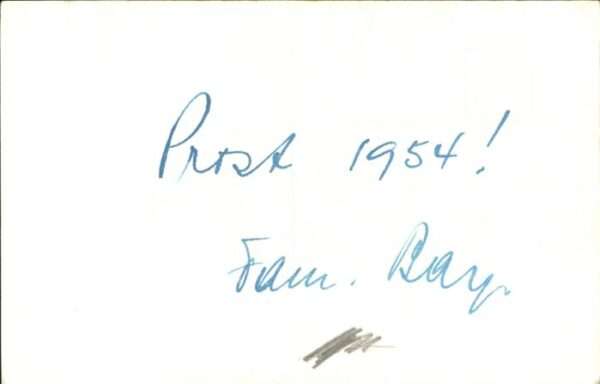 Prost 1954!
Fam. Bary.